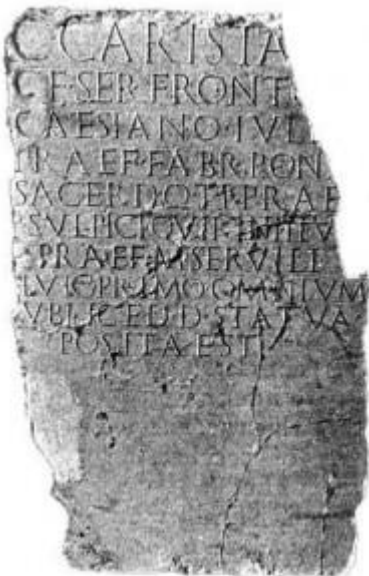 C·CARISTA
C·F·SER·FRONT
CAESIANO·IVL
PRAEF·FABR·PON
SACERDOTI·PRAEF
SVLPICI·QVIRINI·IIV
PRAEF·M·SERVILI
PRIMO·OMNIVM
VBLICE·D·D·STATVA
POSITA·EST